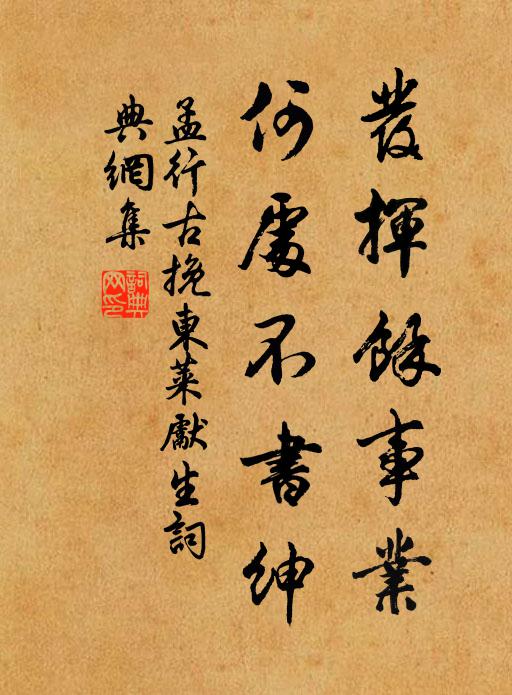 發揮餘事業
何處不書紳
孟行古挽東萊獻生詞
典網集
詞典
网印